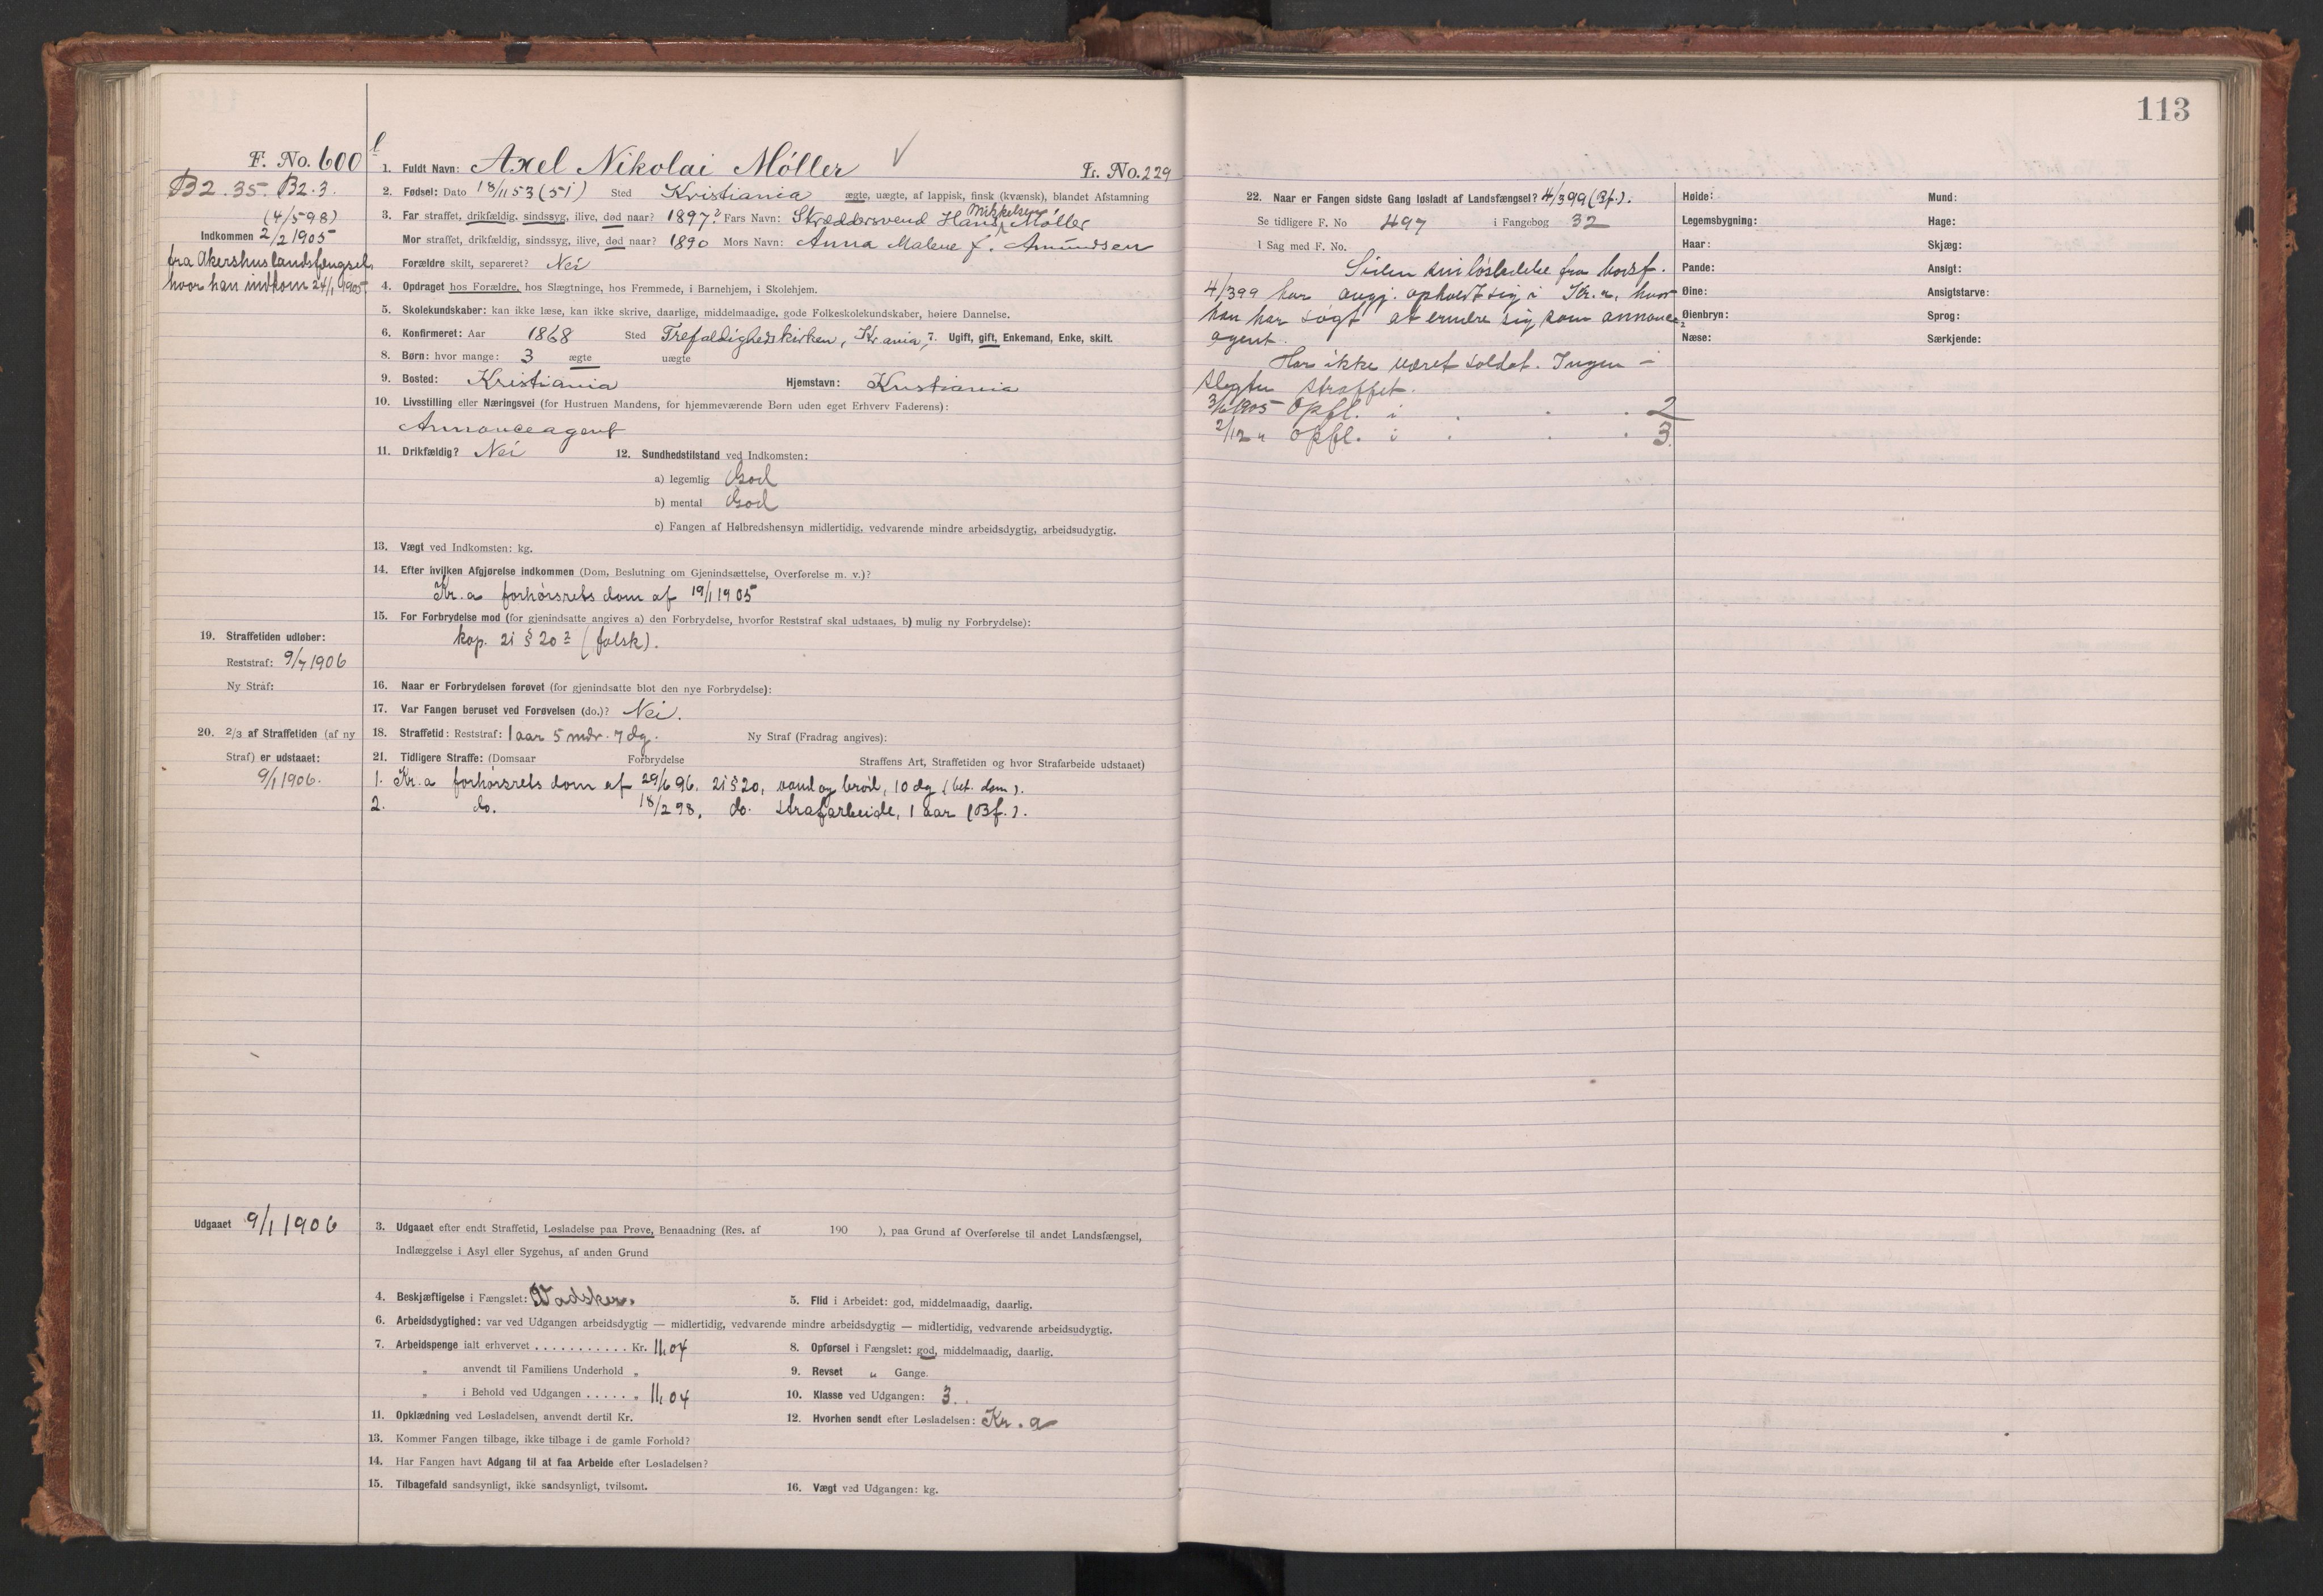 113
F. No. 600
1. Fuldt Navn: Axel Nikolai Möller L. No. 229
B2. 35. B2. 3.
(4/5 98)
2. Fødsel: Dato 18/11 53 (51) Sted Kristiania ægte, uægte, af lappisk, finsk (kvænsk), blandet Afstamning
3. Far straffet, drikfældig, sindssyg, ilive, død naar? 1897? Fars Navn: Skræddersvend Hans Mikkelsen Möller
Indkommen 2/2 1905
Mor straffet, drikfældig, sindssyg, ilive, død naar? 1890 Mors Navn: Anna Malene f. Amundsen
fra Akershus landsfængsel,
Forældre skilt, separeret? Nei
hvor han indkom 24/1 1905
4. Opdraget hos Forældre, hos Slægtninge, hos Fremmede, i Barnehjem, i Skolehjem.
5. Skolekundskaber: kan ikke læse, kan ikke skrive, daarlige, middelmaadige, gode Folkeskolekundskaber, høiere Dannelse.
6. Konfirmeret: Aar 1868 Sted Trefoldighedskirken, Kr.ania, 7. Ugift, gift, Enkemand, Enke, skilt.
8. Børn: hvor mange: 3 ægte uægte
9. Bosted: Kristiania Hjemstavn: Kristiania
10. Livsstilling eller Næringsvei (for Hustruen Mandens, for hjemmeværende Børn uden eget Erhverv Faderens):
Annonceagent
11. Drikfældig? Nei 12. Sundhedstilstand ved Indkomsten:
a) legemlig God
b) mental God
c) Fangen af Helbredshensyn midlertidig, vedvarende mindre arbeidsdygtig, arbeidsudygtig.
13. Vægt ved Indkomsten: kg.
14. Efter hvilken Afgjørelse indkommen (Dom, Beslutning om Gjenindsættelse, Overførelse m. v.)?
Kr.a forhørsrets dom af 19/1 1905
15. For Forbrydelse mod (for gjenindsatte angives a) den Forbrydelse, hvorfor Reststraf skal udstaaes, b) mulig ny Forbrydelse):
kap. 21 § 20 2 (falsk).
19. Straffetiden udløber:
Reststraf: 9/7 1906
Ny Straf:
16. Naar er Forbrydelsen forøvet (for gjenindsatte blot den nye Forbrydelse):
17. Var Fangen beruset ved Forøvelsen (do.)? Nei.
20. 2/3 af Straffetiden (af ny
Straf) er udstaaet:
9/1 1906.
18. Straffetid: Reststraf: 1 aar 5 mdr. 7 dg. Ny Straf (Fradrag angives):
21. Tidligere Straffe: (Domsaar Forbrydelse Straffens Art, Straffetiden og hvor Strafarbeide udstaaet)
1. Kr.a forhørsrets dom af 29/6 96. 21 § 20, vand og brød, 10 dg (bet. dom).
2. do. 18/2 98, do. strafarbeide, 1 aar (Bf.).
Udgaaet 9/1 1906
3. Udgaaet efter endt Straffetid, Løsladelse paa Prøve, Benaadning (Res. af 190 ), paa Grund af Overførelse til andet Landsfængsel,
Indlæggelse i Asyl eller Sygehus, af anden Grund
4. Beskjæftigelse i Fængslet: Vadsker. 5. Flid i Arbeidet: god, middelmaadig, daarlig.
6. Arbeidsdygtighed: var ved Udgangen arbeidsdygtig — midlertidig, vedvarende mindre arbeidsdygtig — midlertidig, vedvarende arbeidsudygtig.
7. Arbeidspenge ialt erhvervet . . . . . . . . . . . Kr. 11,04 8. Opførsel i Fængslet: god, middelmaadig, daarlig.
„ anvendt til Familiens Underhold „ 9. Revset „ Gange.
„ i Behold ved Udgangen . . . . . „ 11,04 10. Klasse ved Udgangen: 3.
11. Opklædning ved Løsladelsen, anvendt dertil Kr. 12. Hvorhen sendt efter Løsladelsen: Kr.a
13. Kommer Fangen tilbage, ikke tilbage i de gamle Forhold?
14. Har Fangen havt Adgang til at faa Arbeide efter Løsladelsen?
15. Tilbagefald sandsynligt, ikke sandsynligt, tvilsomt. 16. Vægt ved Udgangen: kg.
22. Naar er Fangen sidste Gang løsladt af Landsfængsel? 4/3 99 (Bf.).
Se tidligere F. No 497 i Fangebog 32
I Sag med F. No.
Siden sin løsladelse fra bodsf.
4/3 99 har angj. opholdt sig i Kr.a, hvor
han har søgt at ernære sig som annonce-
agent.
Har ikke været soldat. Ingen i
slegten straffet.
3/6 1905 Opfl. i . . . 2
2/12 „ Opfl. i . . . 3.
Høide: Mund:
Legemsbygning: Hage:
Haar: Skjæg:
Pande: Ansigt:
Øine: Ansigtstarve:
Øienbryn: Sprog:
Næse: Særkjende: